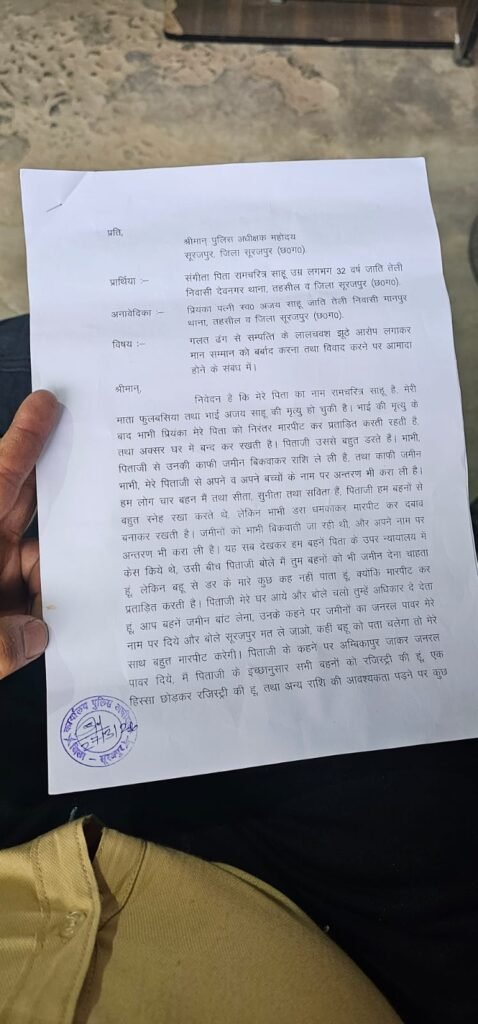 प्रति,
श्रीमान् पुलिस अधीक्षक महोदय
सूरजपुर, जिला सूरजपुर (छ०ग०).
प्रार्थिया :– संगीता पिता रामचरित्र साहू उम्र लगभग 32 वर्ष जाति तेली
निवासी देवनगर थाना, तहसील व जिला सूरजपुर (छ०ग०).
अनावेदिका :– प्रियंका पत्नी स्व० अजय साहू जाति तेली निवासी मानपुर
थाना, तहसील व जिला सूरजपुर (छ०ग०).
विषय :– गलत ढंग से सम्पत्ति के लालचवश झूठे आरोप लगाकर
मान सम्मान को बर्बाद करना तथा विवाद करने पर आमादा
होने के संबध में।
श्रीमान्,
निवेदन है कि मेरे पिता का नाम रामचरित्र साहू है, मेरी
माता फुलबसिया तथा भाई अजय साहू की मृत्यु हो चुकी है। भाई की मृत्यु के
बाद भाभी प्रियंका मेरे पिता को निरंतर मारपीट कर प्रताडित करती रहती है,
तथा अक्सर घर में बन्द कर रखती है। पिताजी उससे बहुत डरते है। भाभी,
पिताजी से उनकी काफी जमीन बिकवाकर राशि ले ली है, तथा काफी जमीन
भाभी, मेरे पिताजी से अपने व अपने बच्चों के नाम पर अन्तरण भी करा ली है।
हम लोग चार बहन मैं तथा सीता, सुनीता तथा सविता हैं, पिताजी हम बहनों से
बहुत स्नेह रखा करते थे, लेकिन भाभी डरा धमकाकर मारपीट कर दबाव
बनाकर रखती है। जमीनों को भाभी बिकवाती जा रही थी, और अपने नाम पर
अन्तरण भी करा ली है। यह सब देखकर हम बहनें पिता के उपर न्यायालय में
केस किये थे, उसी बीच पिताजी बोले मैं तुम बहनों को भी जमीन देना चाहता
हूं, लेकिन बहू से डर के मारे कुछ कह नही पाता हूं, क्योंकि मारपीट कर
प्रताडित करती है। पिताजी मेरे घर आये और बोले चलो तुम्हें अधिकार दे देता
हूं, आप बहनें जमीन बांट लेना, उनके कहने पर जमीनों का जनरल पावर मेरे
नाम पर दिये और बोले सूरजपुर मत ले जाओ, कही बहू को पता चलेगा तो मेरे
साथ बहुत मारपीट करेगी। पिताजी के कहने पर अम्बिकापुर जाकर जनरल
पावर दिये, मैं पिताजी के इच्छानुसार सभी बहनों को रजिस्ट्री की हूं, एक
हिस्सा छोड़कर रजिस्ट्री की हूं, तथा अन्य राशि की आवश्यकता पड़ने पर कुछ
कार्यालय पुलिस
सूरजपुर